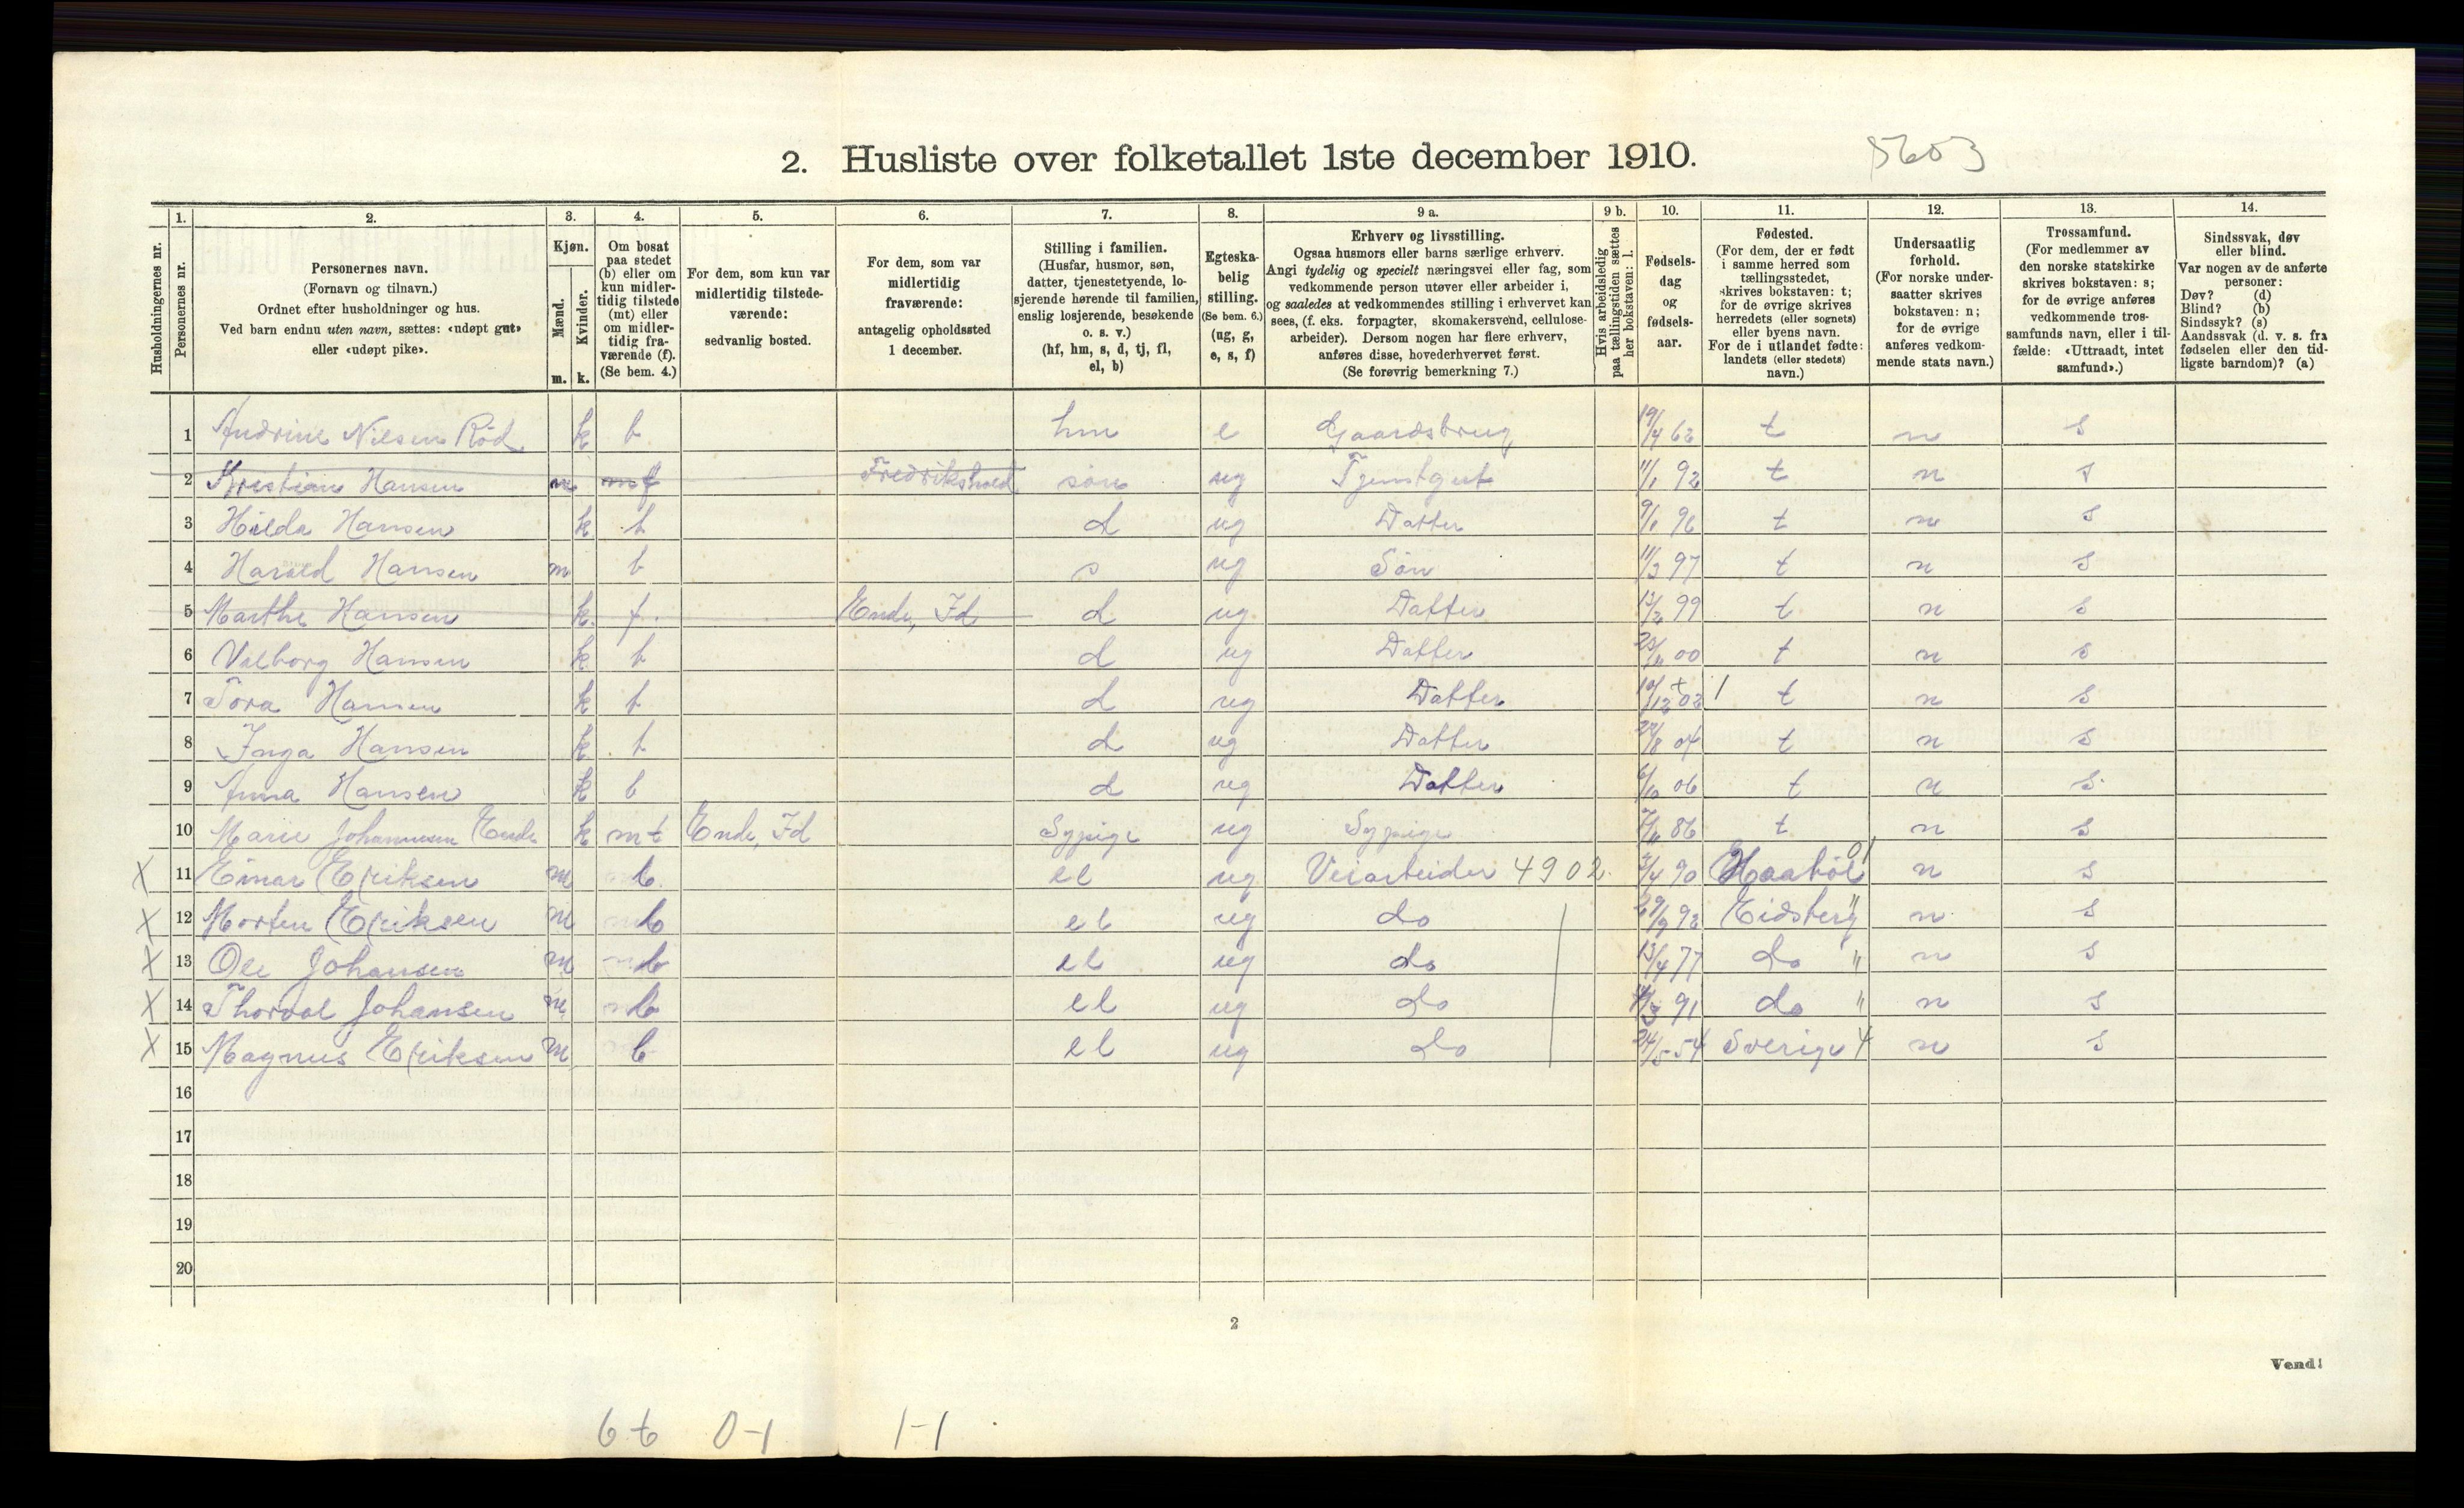 2. Husliste over folketallet 1ste december 1910.
5603
Husholdningernes nr.
1. Personernes nr.
2. Personernes navn. (Fornavn og tilnavn.) Ordnet efter husholdninger og hus. Ved barn endnu uten navn, sættes: «udøpt gut» eller «udøpt pike».
3. Kjøn. Mænd. m. Kvinder. k.
4. Om bosat paa stedet (b) eller om kun midlertidig tilstede (mt) eller om midlertidig fraværende (f). (Se bem. 4.)
5. For dem, som kun var midlertidig tilstedeværende: sedvanlig bosted.
6. For dem, som var midlertidig fraværende: antagelig opholdssted 1 december.
7. Stilling i familien. (Husfar, husmor, søn, datter, tjenestetyende, losjerende hørende til familien, enslig losjerende, besøkende o. s. v.) (hf, hm, s, d, tj, fl, el, b)
8. Egteskabelig stilling. (Se bem. 6.) (ug, g, e, s, f)
9 a. Erhverv og livsstilling. Ogsaa husmors eller barns særlige erhverv. Angi tydelig og specielt næringsvei eller fag, som vedkommende person utøver eller arbeider i, og saaledes at vedkommendes stilling i erhvervet kan sees, (f. eks. forpagter, skomakersvend, cellulosearbeider). Dersom nogen har flere erhverv, anføres disse, hovederhvervet først. (Se forøvrig bemerkning 7.)
9 b. Hvis arbeidsledig paa tællingstiden sættes her bokstaven: l.
10. Fødselsdag og fødselsaar.
11. Fødested. (For dem, der er født i samme herred som tællingsstedet, skrives bokstaven: t; for de øvrige skrives herredets (eller sognets) eller byens navn. For de i utlandet fødte: landets (eller stedets) navn.)
12. Undersaatlig forhold. (For norske undersaatter skrives bokstaven: n; for de øvrige anføres vedkommende stats navn.)
13. Trossamfund. (For medlemmer av den norske statskirke skrives bokstaven: s; for de øvrige anføres vedkommende trossamfunds navn, eller i tilfælde: «Uttraadt, intet samfund».)
14. Sindssvak, døv eller blind. Var nogen av de anførte personer: Døv? (d) Blind? (b) Sindssyk? (s) Aandssvak (d. v. s. fra fødselen eller den tidligste barndom)? (a)
1 Andrine Nielsen Rød k b hm e Gaardsbrug 19/4 62 t n s
2 Kristian Hansen m mt f Fredrikshald søn ug Tjenstgut 11/1 92 t n s
3 Hilda Hansen k b d ug Datter 9/1 96 t n s
4 Harald Hansen m b s ug Søn 11/2 97 t n s
5 Marthe Hansen k. f. Ende, Id d ug Datter 12/2 99 t n s
6 Valborg Hansen k b d ug Datter 00 t n s
7 Tora Hansen k b d ug Datter 10/12 02 1 t n s
8 Inga Hansen k b d ug Datter 04 t n s
9 Anna Hansen k b d ug Datter 6/10 06 t n s
10 Marie Johannesen Ende k mt Ende, Id Sypige ug Sypige 86 t n s
X 11 Einar Eriksen m b el ug Veiarbeider 4902 3/4 90 Haabøl 01 n s
X 12 Morten Eriksen m b el ug do 29/9 92 Eidsberg " n s
X 13 Ole Johansen m b el ug do 13/4 77 do " n s
X 14 Thorval Johansen m b el ug do 91 do " n s
X 15 Magnus Eriksen m b el ug do 24/5 54 Sverige 4 n s
16
17
18
19
20
2
Vend!
6 + 6 0-1 1-1